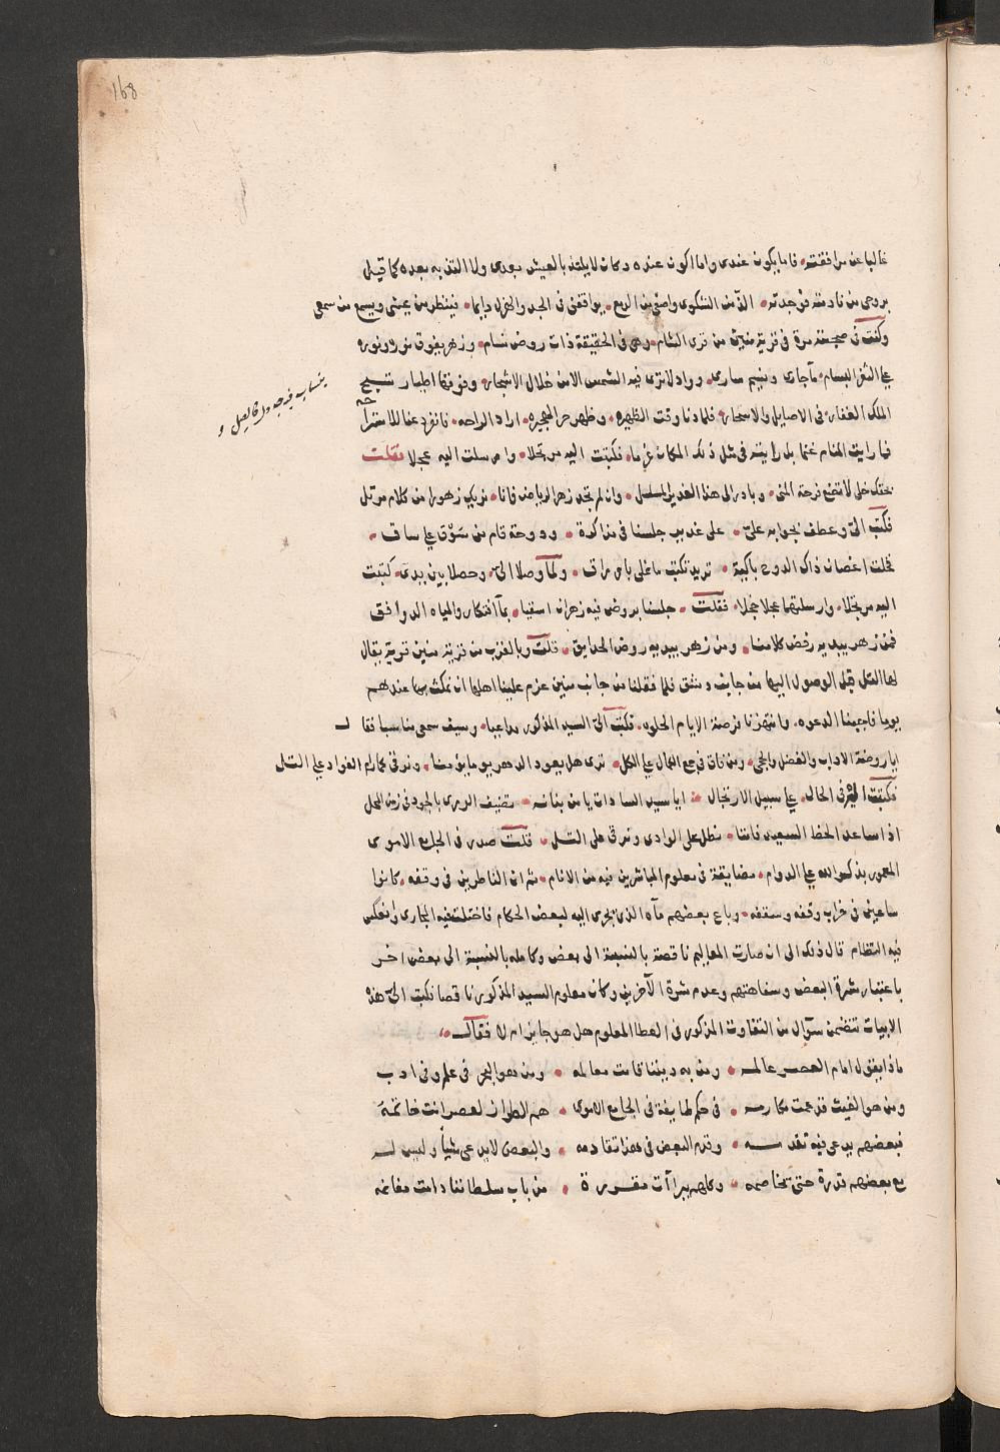 168
غالبا عن مرافقته فاما يكون عندى واما اكون عنده وكان لا يلتذ بالعيش بعدى ولا التذ به بعده كما قيل
بروحى من نادمته فوجدته الذ من الشكوى واصفى من الدمع يوافقنى فى الجد والهزل دايما فينظر من عينى ويسمع من سمعى
وكنت فى صحبته مرة فى قرية منين من قرى الشام وهى فى الحقيقة ذات روض نسام وزهر يفوق نوره ونوره
على الثغر البسام مآجارى ونسيم سارى وواد لا ترى فيه الشمس الا من خلال الاشجار وفوقها اطيار تسبح
الملك الغفار فى الاصايل والاسحار فلما دنا وقت الظهيره وظهر حر الهجيره اراد الراحه فانفرد عنا للاستراحه
فما رايت المنام غنما بل رايته فى مثل ذلك المكان غرما فكتبت اليه مرتجلا وارسلت اليه عجلا فقلت
بحقك خلى لا تضع فرصة المنى وبادر الى هذا الغدير المسلسل وان لم تجد زهر الرياض فاننا نريك زهورا من كلام مرتل
فكتب الىّ وعطف بجوابه علىّ على غدير جلسنا فى مذاكرة ودوحة قام من شوق على ساق
فخلت اغصان ذاك الدوح باكية تريد تكتب ما تملى باوراق ولما وصلا الىّ وحصلا بين يدى كتبت
اليه مرتجلا وارسلتهما عجلا خجلا فقلت جلسنا بروض فيه زهران اسقيا بمآ افتكار والمياه الدوافق
فمن زهر يبديه رفض كلامنا ومن زهر يبديه روض الحدايق قلت وبالقرب من قرية منين قرية يقال
لها التل قبل الوصول اليها من جانب دمشق فلما قفلنا من جانب منين عزم علينا اهلها ان نمكث بها عندهم
يوما فاجبنا الدعوه وانتهزنا فرصة الايام الحلوه فكتب الىّ السيد المذكور مداعبا وسيف سمعى مناسبا فقال
ايا روضة الاداب والفضل والحجى ومن فاق فى جمع الكمال على الكل ترى هل يعود الدهر يوما يؤمنا ونرقى بمكارم الفواد على التل
فكتبت اليه فى الحال على سبيل الارتجال ايا سيد السادات يا من بنانه تضيف الورى بالجود فى زمن المحل
اذا ساعد الحظ السعيد فاننا نطل على الوادى ونرقى على التل قلت صدر فى الجامع الاموى
المعمور بذكر الله على الدوام مضايقة فى معلوم المباشرين فيه من الانام ثم ان الناظرين فى وقفه كانوا
ساعين فى خراب وقفه وسقفه وباع بعضهم مآه الذى يجرى اليه لبعض الحكام فاختلت فيه المجارى وانعكس
فيه النظام قال ذلك الى ان صارت المعاليم ناقصة بالنسبة الى بعض وكامله بالنسبة الى بعض اخر
باعتبار شرة البعض وسفاهتهم وعدم شرة الآخرين وكان معلوم السيد المذكور ناقصا فكتب الىّ هذه
الابيات تتضمن سؤال من التفاوت المذكور فى العطا المعلوم هل هو جايز ام لا فقال
ماذا يقول امام العصر عالمه ومن به دبينا قامت معالمه ومن هو البحر فى علم وفى ادب
ومن هو الغيث قد عمت مكارمه فى حكم طايفة فى الجامع الاموى هم الطراز لعصر انت خاتمه
فبعضهم يدعى فيه تقدمه وقدم البعض فى هذا تقادمه والبعض لا يدعى شيأ وليس له
مع بعضهم قدرة حتى يخاصمه وكلهم ببراآت مقررة من باب سلطاننا دامت مغانمه